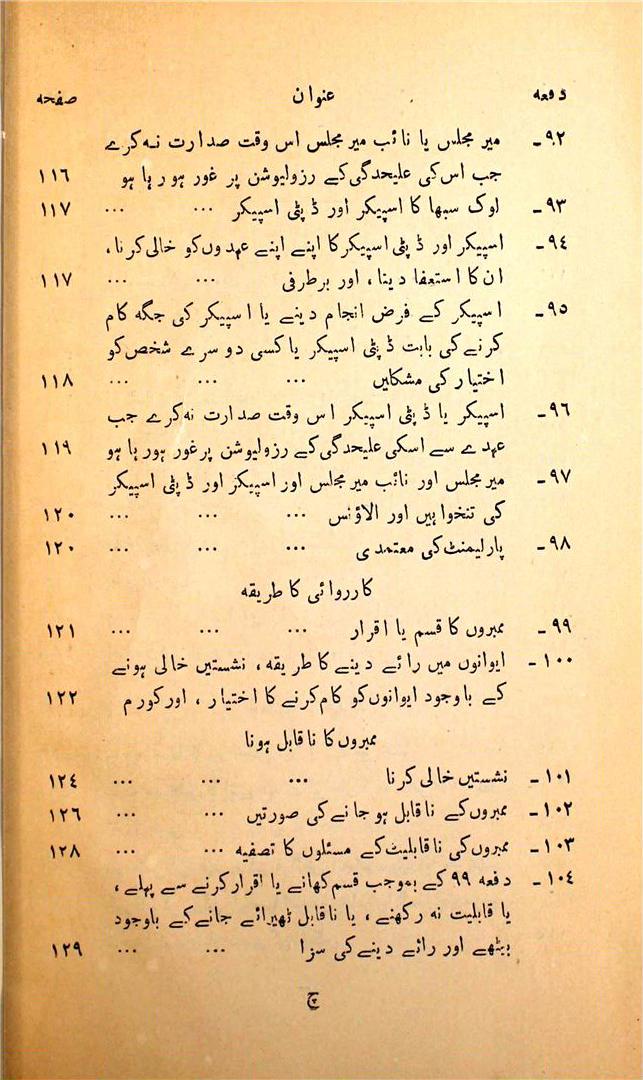 دفعہ عنوان صفحہ
۹۲- میر مجلس یا نائب میر مجلس اس وقت صدارت نہ کرے
جب اس کی علیحدگی کے رزولیوشن پر غور ہو رہا ہو ۱۱٦
۹۳- لوک سبھا کا اسپیکر اور ڈپٹی اسپیکر ... ... ۱۱۷
۹٤- اسپیکر اور ڈپٹی اسپیکر کا اپنے اپنے عہدوں کو خالی کرنا،
ان کا استعفا دینا، اور برطرفی ... ... ۱۱۷
۹۵- اسپیکر کے فرض انجام دینے یا اسپیکر کی جگہ کام
کرنے کی بابت ڈپٹی اسپیکر یا کسی دوسرے شخص کو
اختیار کی مشکلیں ... ... ... ۱۱۸
۹٦- اسپیکر یا ڈپٹی اسپیکر اس وقت صدارت نہ کرے جب
عہدے سے اسکی علیحدگی کے رزولیوشن پر غور ہو رہا ہو ۱۱۹
۹۷- میر مجلس اور نائب میر مجلس اور اسپیکر اور ڈپٹی اسپیکر
کی تنخواہیں اور الاؤنس ... ... ... ۱۲۰
۹۸- پارلیمنٹ کی معتمدی ... ... ... ۱۲۰
کارروائی کا طریقہ
۹۹- ممبروں کا قسم یا اقرار ... ... ... ۱۲۱
۱۰۰- ایوانوں میں رائے دینے کا طریقہ، نشستیں خالی ہونے
کے باوجود ایوانوں کو کام کرنے کا اختیار، اور کورم ۱۲۲
ممبروں کا ناقابل ہونا
۱۰۱- نشستیں خالی کرنا ... ... ... ۱۲٤
۱۰۲- ممبروں کے ناقابل ہو جانے کی صورتیں ... ... ۱۲٦
۱۰۳- ممبروں کی ناقابلیت کے مسئلوں کا تصفیہ ... ... ۱۲۸
۱۰٤- دفعہ ۹۹ کے بموجب قسم کھانے یا اقرار کرنے سے پہلے،
یا قابلیت نہ رکھنے، یا ناقابل ٹھیرائے جانے کے باوجود
بیٹھے اور رائے دینے کی سزا ... ... ۱۲۹
چ